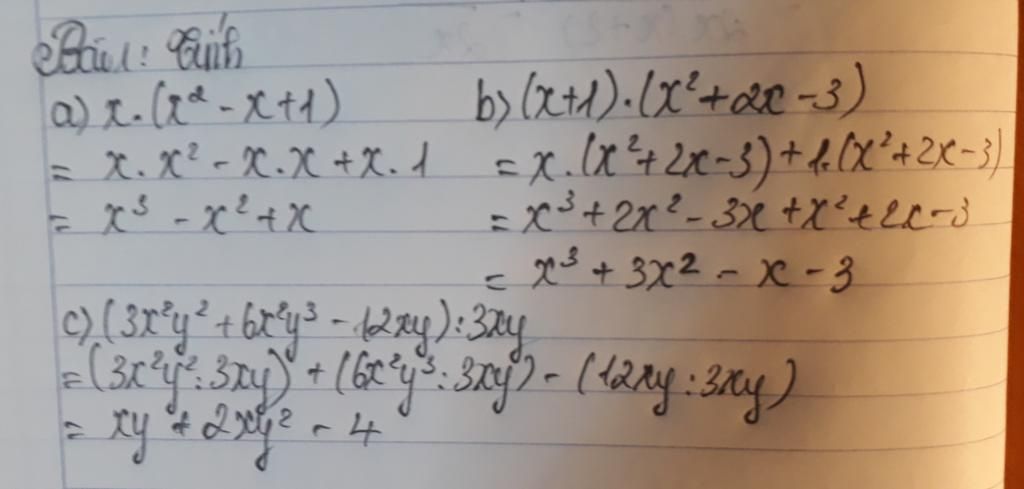 Bài 1: Tính
a) x.(x² - x + 1)
= x.x² - x.x + x.1
= x³ - x² + x
b) (x+1).(x² + 2x - 3)
= x.(x² + 2x - 3) + 1.(x² + 2x - 3)
= x³ + 2x² - 3x + x² + 2x - 3
= x³ + 3x² - x - 3
c) (3x²y² + 6x²y³ - 12xy) : 3xy
= (3x²y² : 3xy) + (6x²y³ : 3xy) - (12xy : 3xy)
= xy + 2xy² - 4